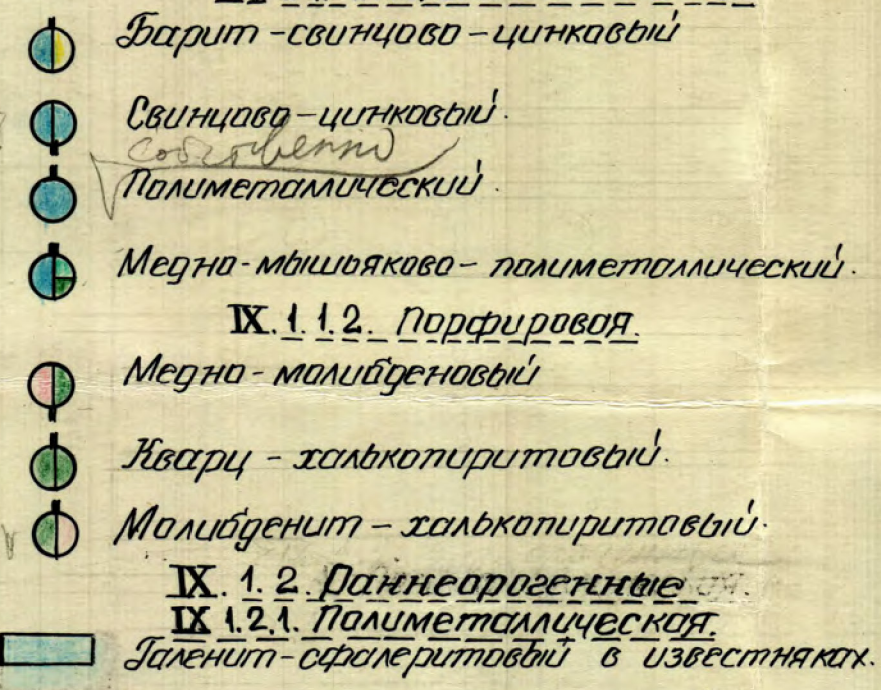 Барит-свинцово-цинковый
Свинцово-цинковый.
Собственно
Полиметаллический.
Медно-мышьяково-полиметаллический.
IX.1.1.2. Порфировая.
Медно-молибденовый
Кварц-халькопиритовый.
Молибденит-халькопиритовый.
IX.1.2. Раннеорогенные
IX 1.2.1. Полиметаллическая.
Галенит-сфалеритовый в известняках.